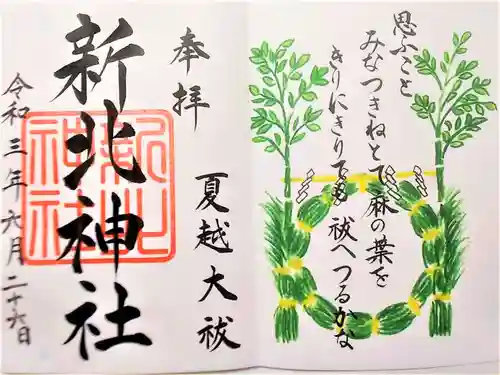 思ふこと
みなつきねとて麻の葉を
きりにきりても祓へつるかな
奉拝
夏越大祓
新北神社
令和三年六月二十六日
新北
神社